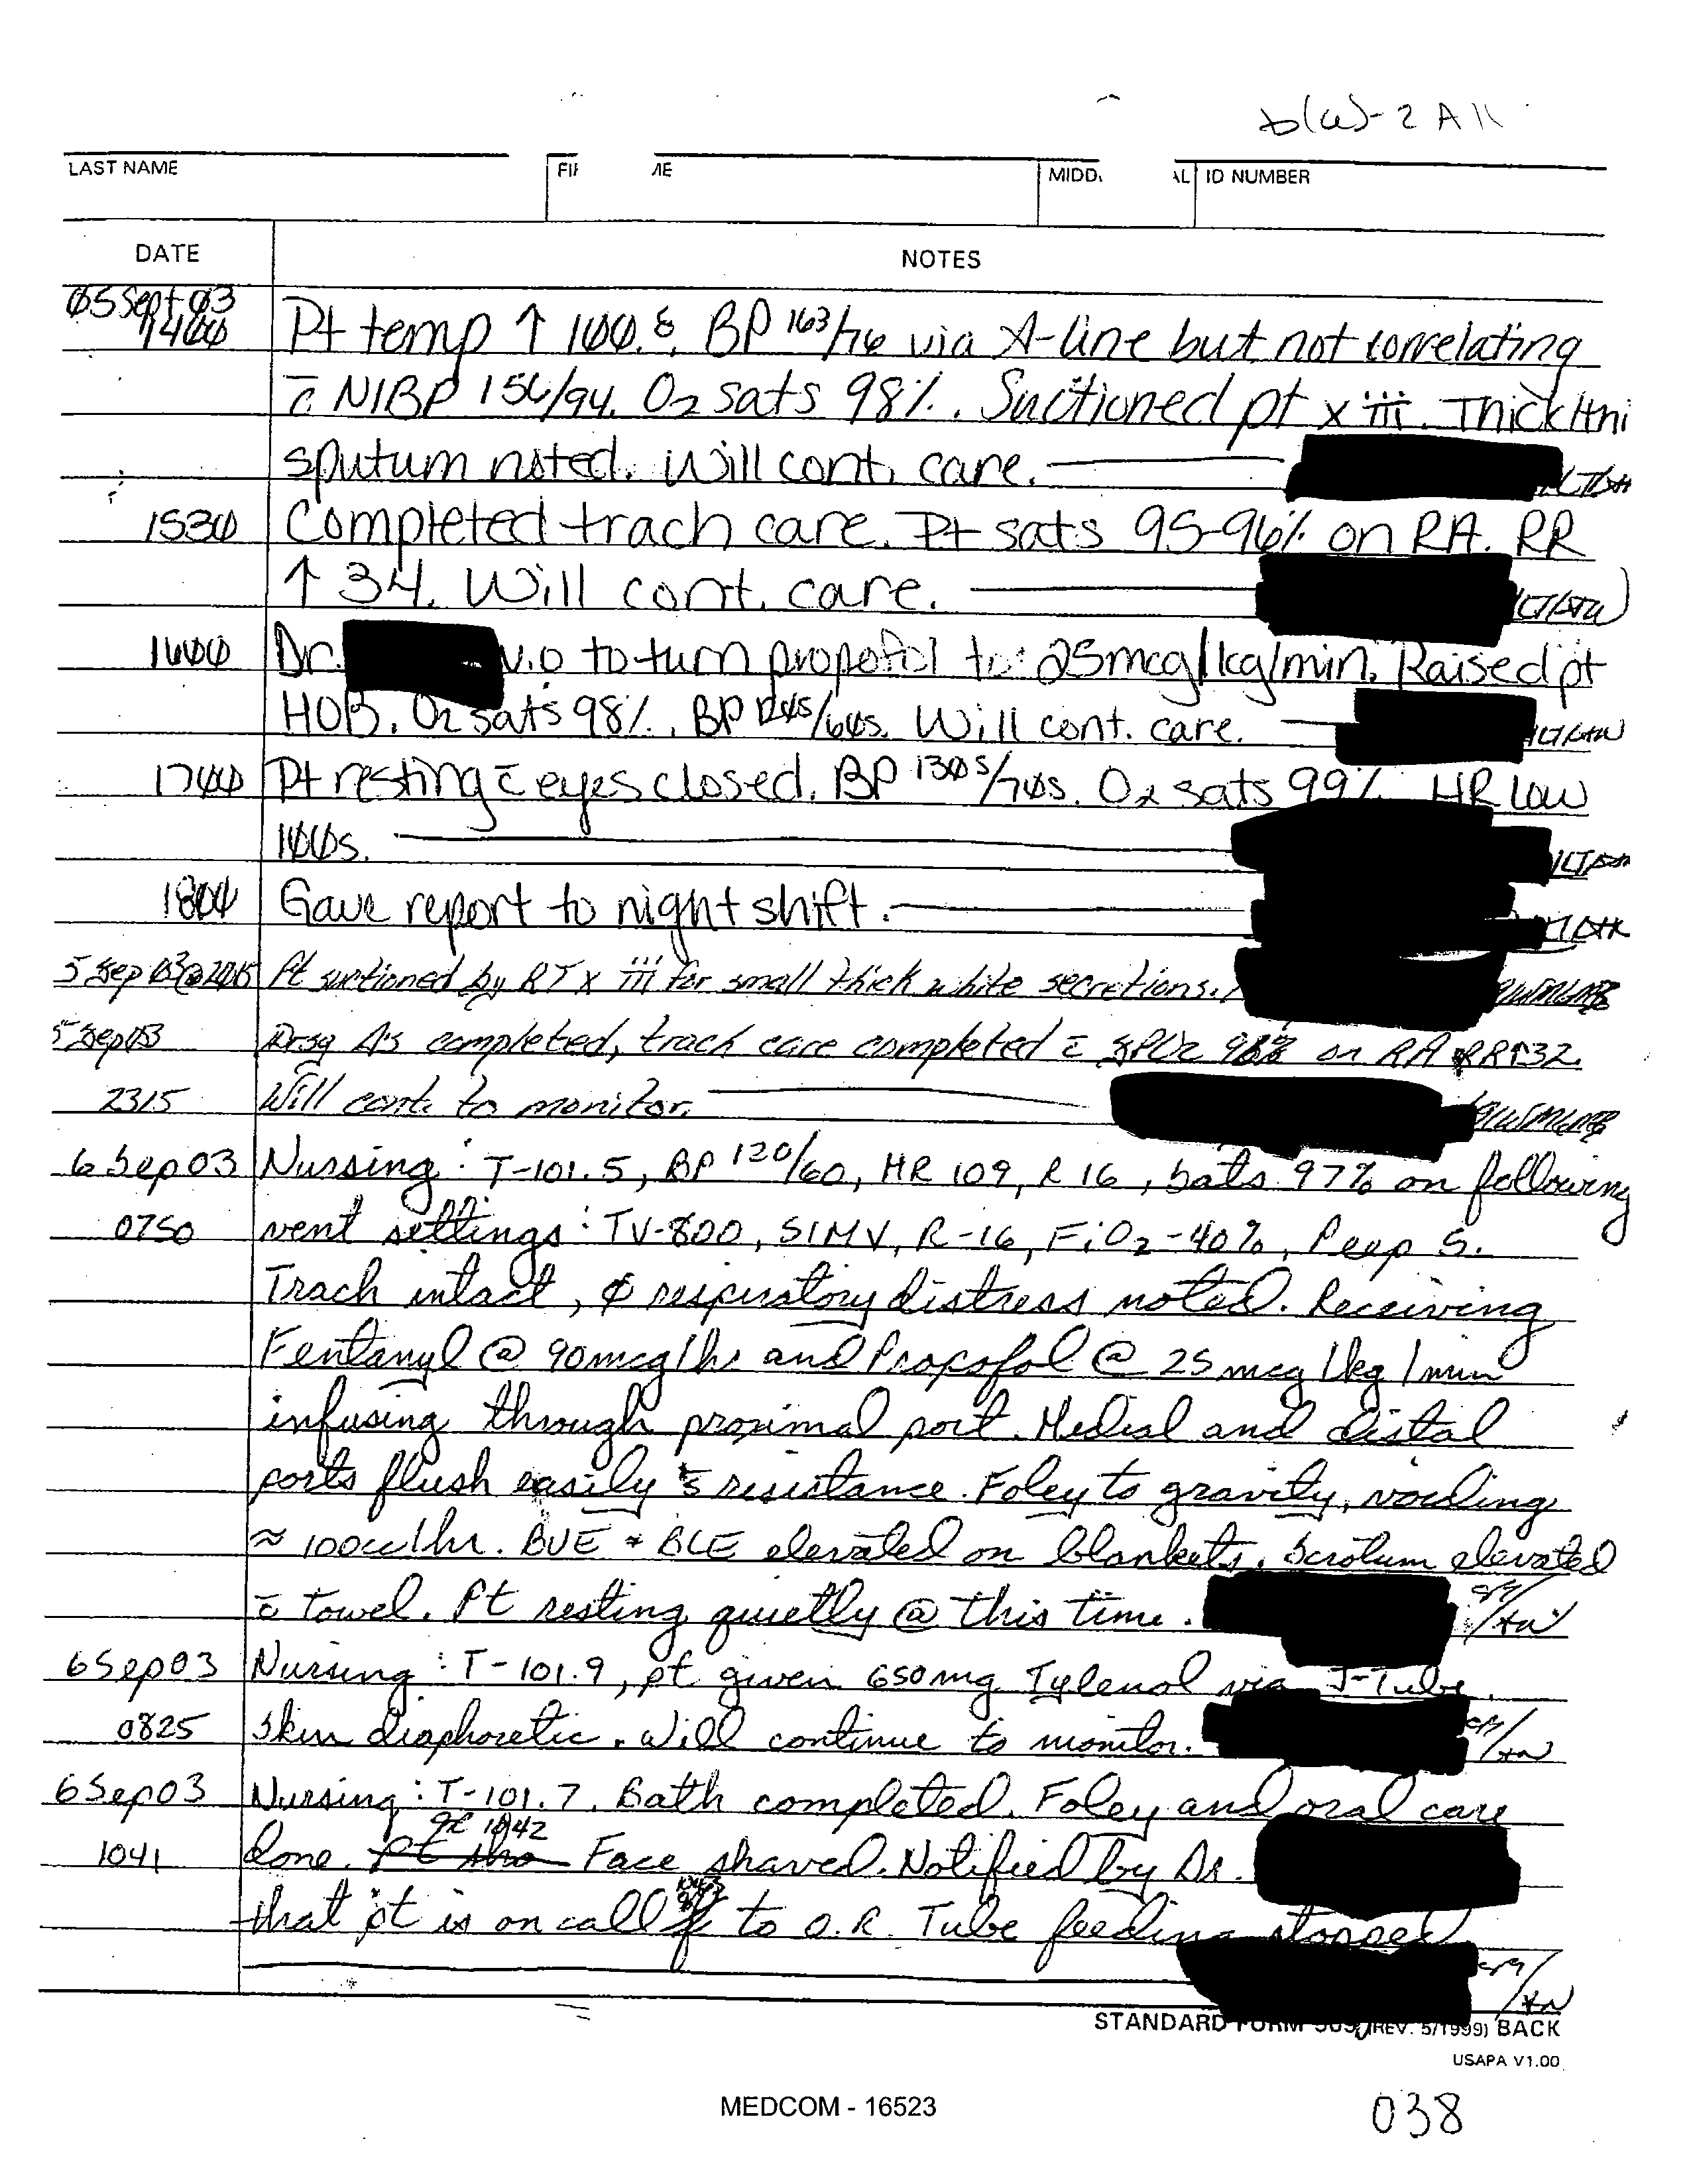 b(6)-2 All
LAST NAME FI ME MIDD AL ID NUMBER
DATE NOTES
05 Sept 03
1400 Pt temp ↑ 100.8. BP 163/76 via A-line but not correlating
c̄ NIBP 156/94. O2 sats 98%. Suctioned pt x iii. Thick
sputum noted. Will cont. care.
1530 Completed trach care. Pt sats 95-96% on RA. RR
↑ 34. Will cont. care.
1600 Dr. v.o to turn propofol to 25mcg/kg/min. Raised pt
HOB. O2 sats 98%. BP 120s/60s. Will cont. care.
1700 Pt resting c̄ eyes closed. BP 130s/70s. O2 sats 99% HR low
100s.
1800 Gave report to night shift.
5 Sep 03 @ Pt suctioned by RT x iii for small thick white secretions.
5 Sep 03 Drsg Δs completed, trach care completed c̄ SPO2 98% on RA RR↑32.
2315 Will cont. to monitor.
6 Sep 03 Nursing: T-101.5, BP 120/60, HR 109, R 16, sats 97% on following
0750 vent settings: TV-800, SIMV, R-16, FiO2-40%, Peep 5.
Trach intact, ∅ respiratory distress noted. Receiving
Fentanyl @ 90mcg/hr and Propofol @ 25 mcg/kg/min
infusing through proximal port. Medial and distal
ports flush easily s̄ resistance. Foley to gravity, voiding
≈ 100cc/hr. BUE + BLE elevated on blankets. Scrotum elevated
c̄ towel. Pt resting quietly @ this time.
6 Sep 03 Nursing: T-101.9, pt given 650mg Tylenol via J-Tube.
0825 Skin diaphoretic. Will continue to monitor.
6 Sep 03 Nursing: T-101.7. Bath completed. Foley and oral care
1042
1041 done. Face shaved. Notified by Dr.
that pt is on call to O.R. Tube feeding stopped
STANDARD FORM 509 (REV. 5/1999) BACK
USAPA V1.00
MEDCOM - 16523
038